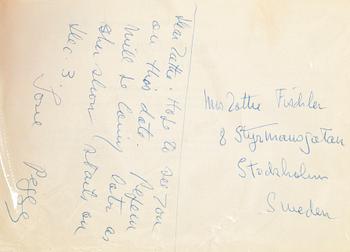 Dear Zothe: Hope to see you
on this date. Pepein
will be coming later as
the show starts on
Dec. 3.
Love Peggy
Mrs Zothe Fischler
8 Styrmansgatan
Stockholm
Sweden